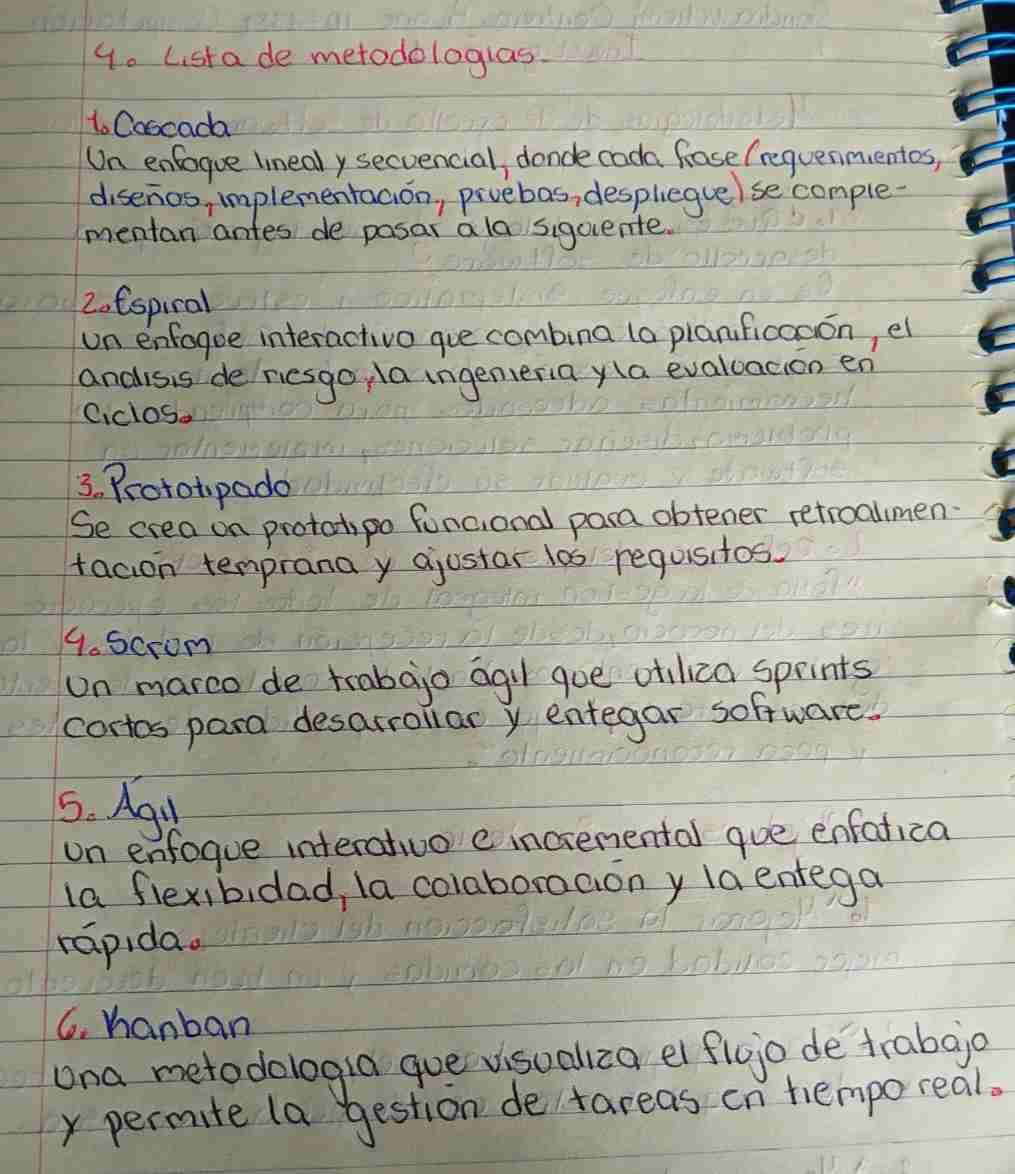 4. Lista de metodologias.
1. Cascada
Un enfoque lineal y secuencial, donde cada frase (requerimientos,
diseños, implementación, pruebas, despliegue) se comple-
mentan antes de pasar a la siguiente.
2. Espiral
Un enfoque interactivo que combina la planificación, el
analisis de riesgo, la ingenieria y la evaluación en
Ciclos.
3. Prototipado
Se crea un prototipo funcional para obtener retroalimen-
tación temprana y ajustar los requisitos.
4. Scrum
Un marco de trabajo ágil que utiliza sprints
cortos para desarrollar y entegar software.
5. Ágil
Un enfoque interativo e incremental que enfatica
la flexibidad, la colaboración y la entega
rápida.
6. Kanban
Una metodologia que visualiza el flujo de trabajo
y permite la gestión de tareas en tiempo real.